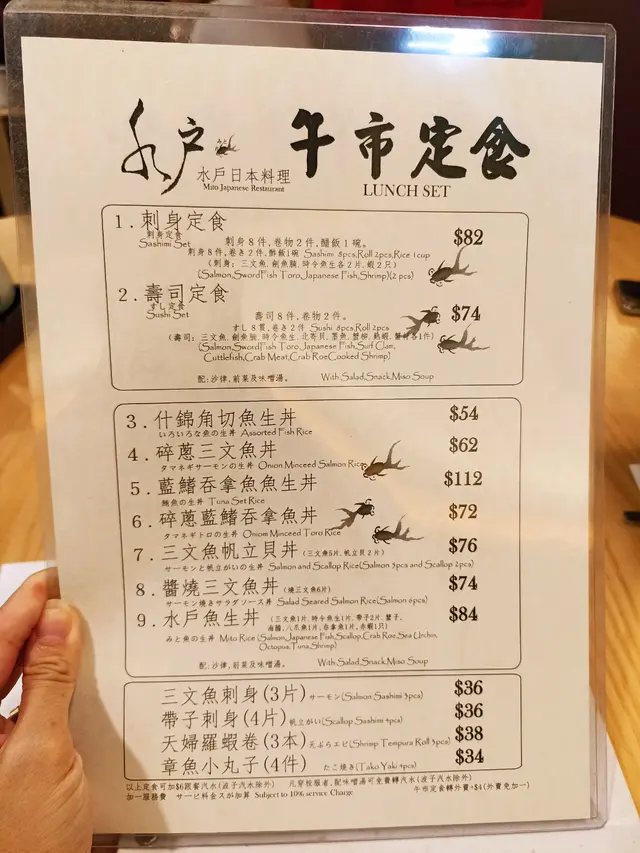 水戶
水戶日本料理
Mito Japanese Restaurant
午市定食
LUNCH SET
1. 刺身定食 $82
刺身定食
Sashimi Set
刺身8件,卷物2件,醋飯1碗。
刺身8件,卷き2件,酢飯1碗 Sashimi 8pcs,Roll 2pcs,Rice 1cup
(刺身:三文魚,劍魚腩,時令魚生各2片,蝦2只)
(Salmon,SwordFish Toro,Japanese Fish,Shrimp)(2 pcs)
2. 壽司定食 $74
すし定食
Sushi Set
壽司8件,卷物2件。
すし8貫,卷き2件 Sushi 8pcs,Roll 2pcs
(壽司:三文魚,劍魚腩,時令魚生,北寄貝,墨魚,蟹柳,熟蝦,蟹籽各1件)
(Salmon,SwordFish Toro,Japanese Fish,Surf Clam,
Cuttlefish,Crab Meat,Crab Roe,Cooked Shrimp)
配:沙律,前菜及味噌湯。 With Salad,Snack,Miso Soup
3. 什錦角切魚生丼 $54
いろいろな魚の生丼 Assorted Fish Rice
4. 碎蔥三文魚丼 $62
タマネギサーモンの生丼 Onion Minceed Salmon Rice
5. 藍鰭吞拿魚魚生丼 $112
鮪魚の生丼 Tuna Set Rice
6. 碎蔥藍鰭吞拿魚丼 $72
タマネギトロの生丼 Oniom Minceed Toro Rice
7. 三文魚帆立貝丼 (三文魚5片,帆立貝2片) $76
サーモンと帆立がいの生丼 Salmon and Scallop Rice(Salmon 5pcs and Scallop 2pcs)
8. 醬燒三文魚丼 (燒三文魚6片) $74
サーモン焼きサラダソース丼 Salad Seared Salmon Rice(Salmon 6pcs)
9. 水戶魚生丼 (三文魚1片,時令魚生1片,帶子2片,蟹子, $84
海膽,八爪魚1片,吞拿魚1片,赤蝦1只)
みと魚の生丼 Mito Rice (Salmon,Japanese Fish,Scallop,Crab Roe,Sea Urchin,
Octopus,Tuna,Shrimp)
配:沙律,前菜及味噌湯。 With Salad,Snack,Miso Soup
三文魚刺身(3片) サーモン(Salmon Sashimi 3pcs) $36
帶子刺身(4片) 帆立がい(Scallop Sashimi 4pcs) $36
天婦羅蝦卷(3本) 天ぷらエビ(Shrimp Tempura Roll 3pcs) $38
章魚小丸子(4件) たこ焼き(Tako Yaki 4pcs) $34
以上定食可加$6跟餐汽水(波子汽水除外) 凡穿校服者,配味噌湯可免費轉汽水(波子汽水除外)
加一服務費 サービ料金スが加算 Subject to 10% service Charge 午市定食轉外賣+$4(外賣免加一)